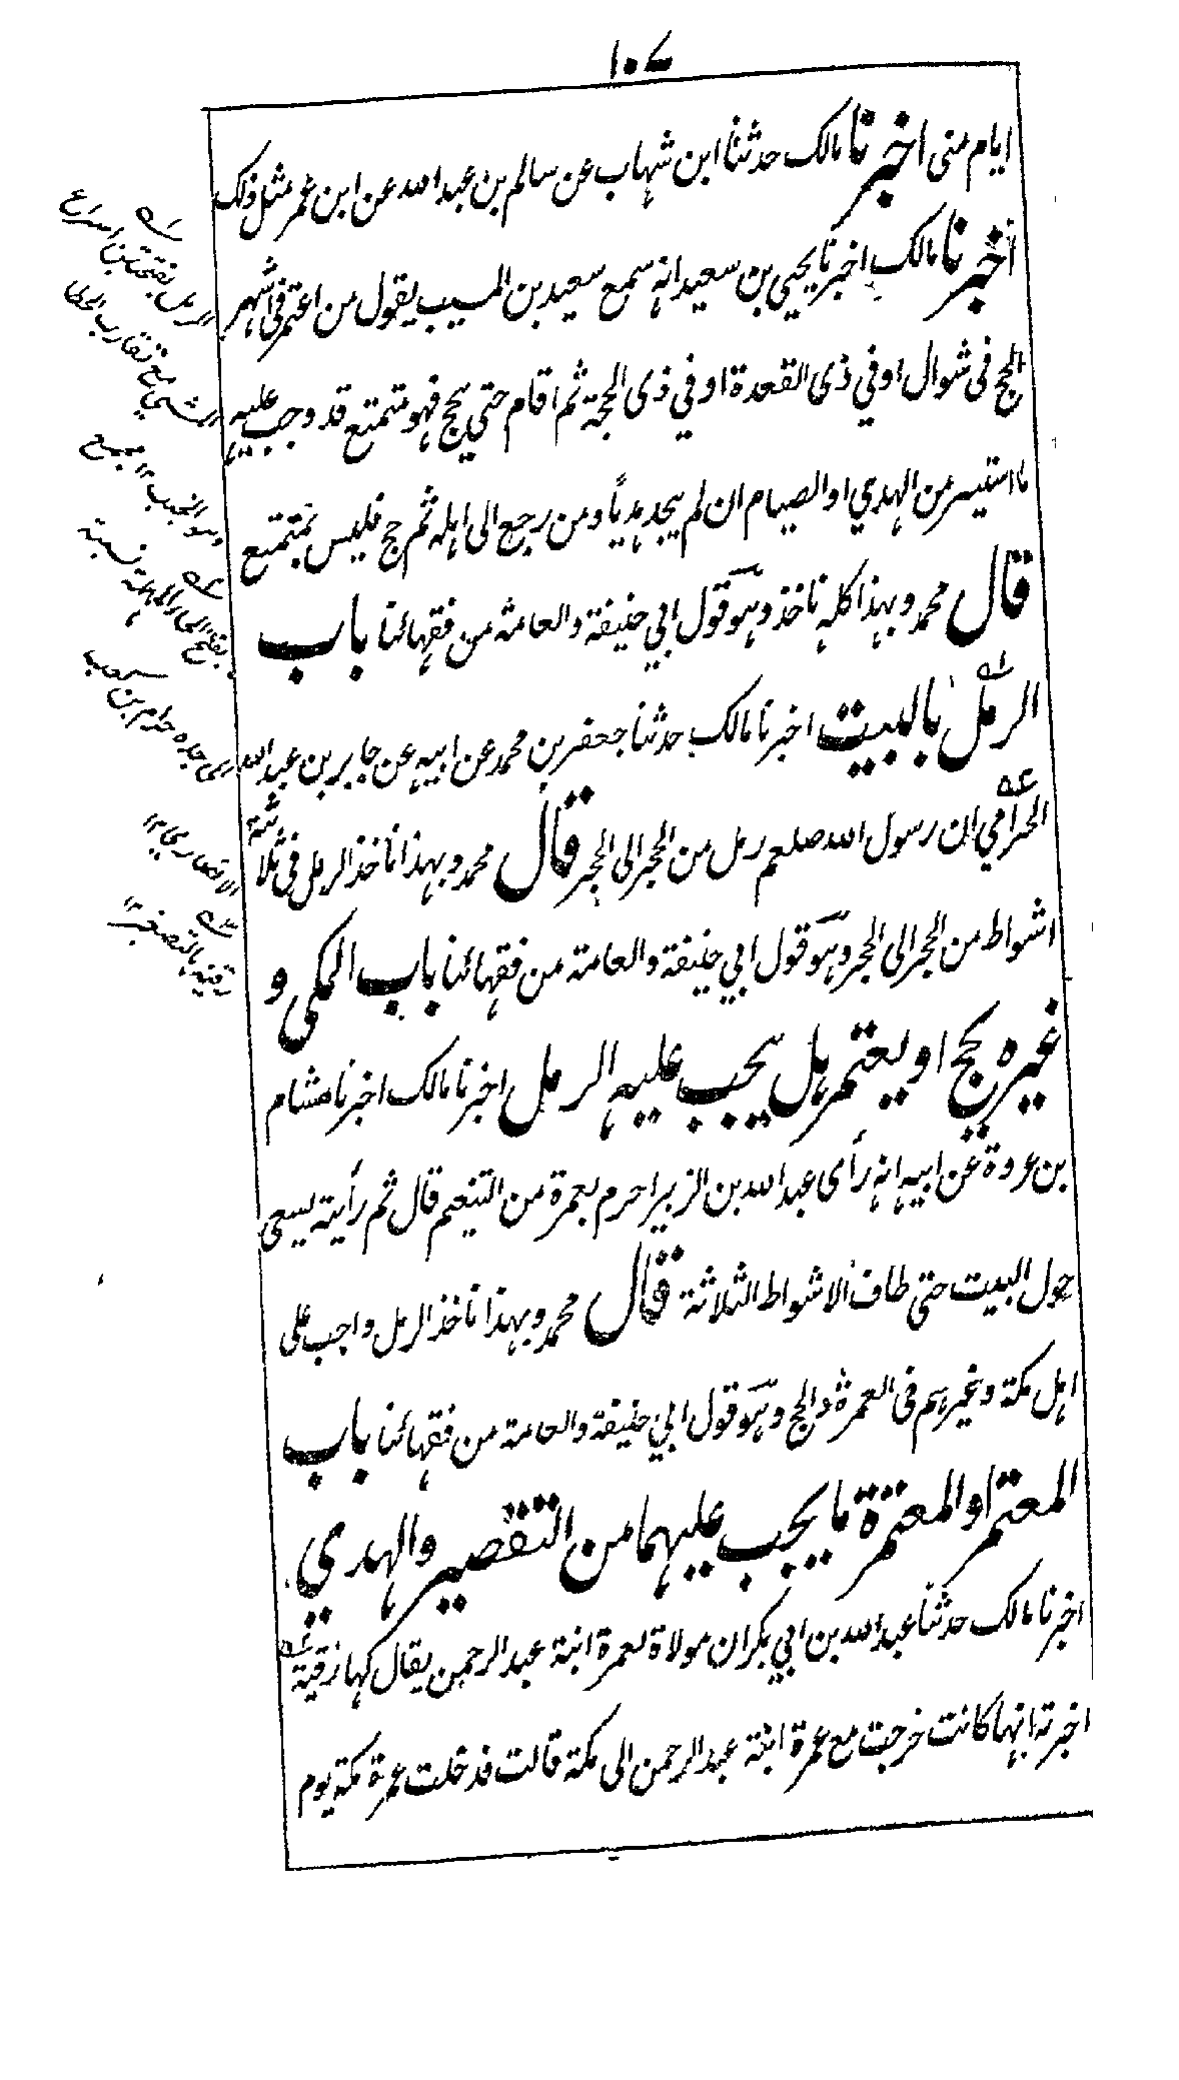 ١٠٧
ايام منى اخبرنا مالك حدثنا ابن شهاب عن سالم بن عبد الله عن ابن عمر مثل ذلك
اخبرنا مالك اخبرنا يحيى بن سعيد انه سمع سعيد بن المسيب يقول من اعتمر فى اشهر
الحج فى شوال او في ذى القعدة او في ذى الحجة ثم اقام حتي يحج فهو متمتع قد وجب عليه
ما استيسر من الهدي او الصيام ان لم يجد هدياً ومن رجع الى اهله ثم حج فليس بمتمتع
قال محمد وبهذا كله ناخذ وهو قول ابي حنيفة والعامة من فقهائنا باب
الرمل بالبيت اخبرنا مالك حدثنا جعفر بن محمد عن ابيه عن جابر بن عبد الله
الحرامي ان رسول الله صلعم رمل من الحجر الى الحجر قال محمد وبهذا ناخذ الرمل فى ثلاثة
اشواط من الحجر الى الحجر وهو قول ابي حنيفة والعامة من فقهائنا باب المكى و
غيره يحج او يعتمر هل يجب عليه الرمل اخبرنا مالك اخبرنا هشام
بن عروة عن ابيه انه رأى عبد الله بن الزبير احرم بعمرة من التنعيم قال ثم رأيته يسعى
حول البيت حتى طاف الاشواط الثلاثة قال محمد وبهذا ناخذ الرمل واجب على
اهل مكة وغيرهم فى العمرة والحج وهو قول ابي حنيفة والعامة من فقهائنا باب
المعتمر او المعتمرة ما يجب عليهما من التقصير والهدي
اخبرنا مالك حدثنا عبد الله بن ابي بكر ان مولاة لعمرة ابنة عبد الرحمن يقال لها رقية
اخبرته انها كانت خرجت مع عمرة ابنة عبد الرحمن الى مكة قالت فدخلت عمرة مكة يوم
الرمل بفتحتين اسراع
المشي مع تقارب الخطا
وهو الخبب ١٢ مجمع
بفتح الحاء المهملة نسبة
الى جده حرام بن كعب
الانصاري ١٢
رقية بالتصغير ١٢